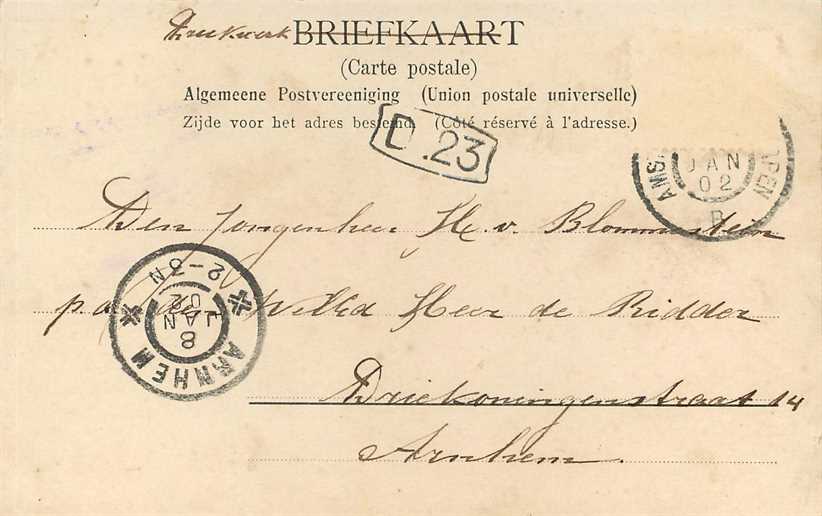 Drukwerk BRIEFKAART
(Carte postale)
Algemeene Postvereeniging (Union postale universelle)
Zijde voor het adres bestemd. (Côté réservé à l'adresse.)
D.23
AMS
JAN
02
Den Jongenheer H. v. Blommestein
p a den WelEd Heer de Ridder
Driekoningenstraat 14
Arnhem.
ARNHEM
8
JAN
02
2-3N